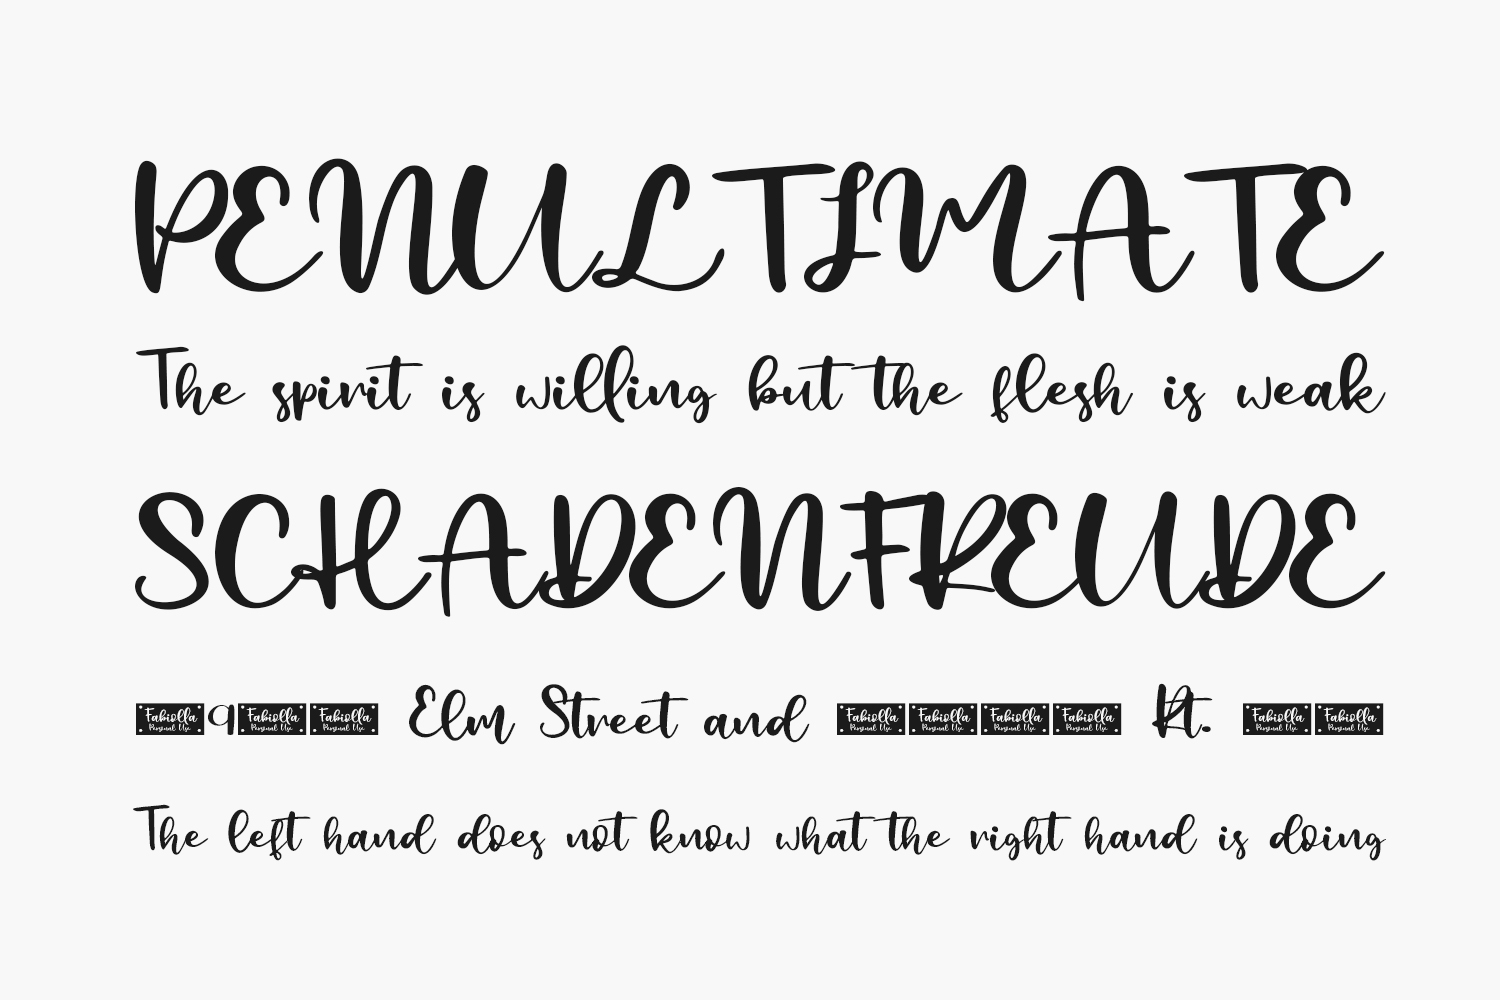 PENULTIMATE
The spirit is willing but the flesh is weak
SCHADENFREUDE
Fabiolla Personal Use 9 Fabiolla Personal Use Fabiolla Personal Use Elm Street and Fabiolla Personal Use Fabiolla Personal Use Fabiolla Personal Use Fabiolla Personal Use Rt. Fabiolla Personal Use Fabiolla Personal Use
The left hand does not know what the right hand is doing